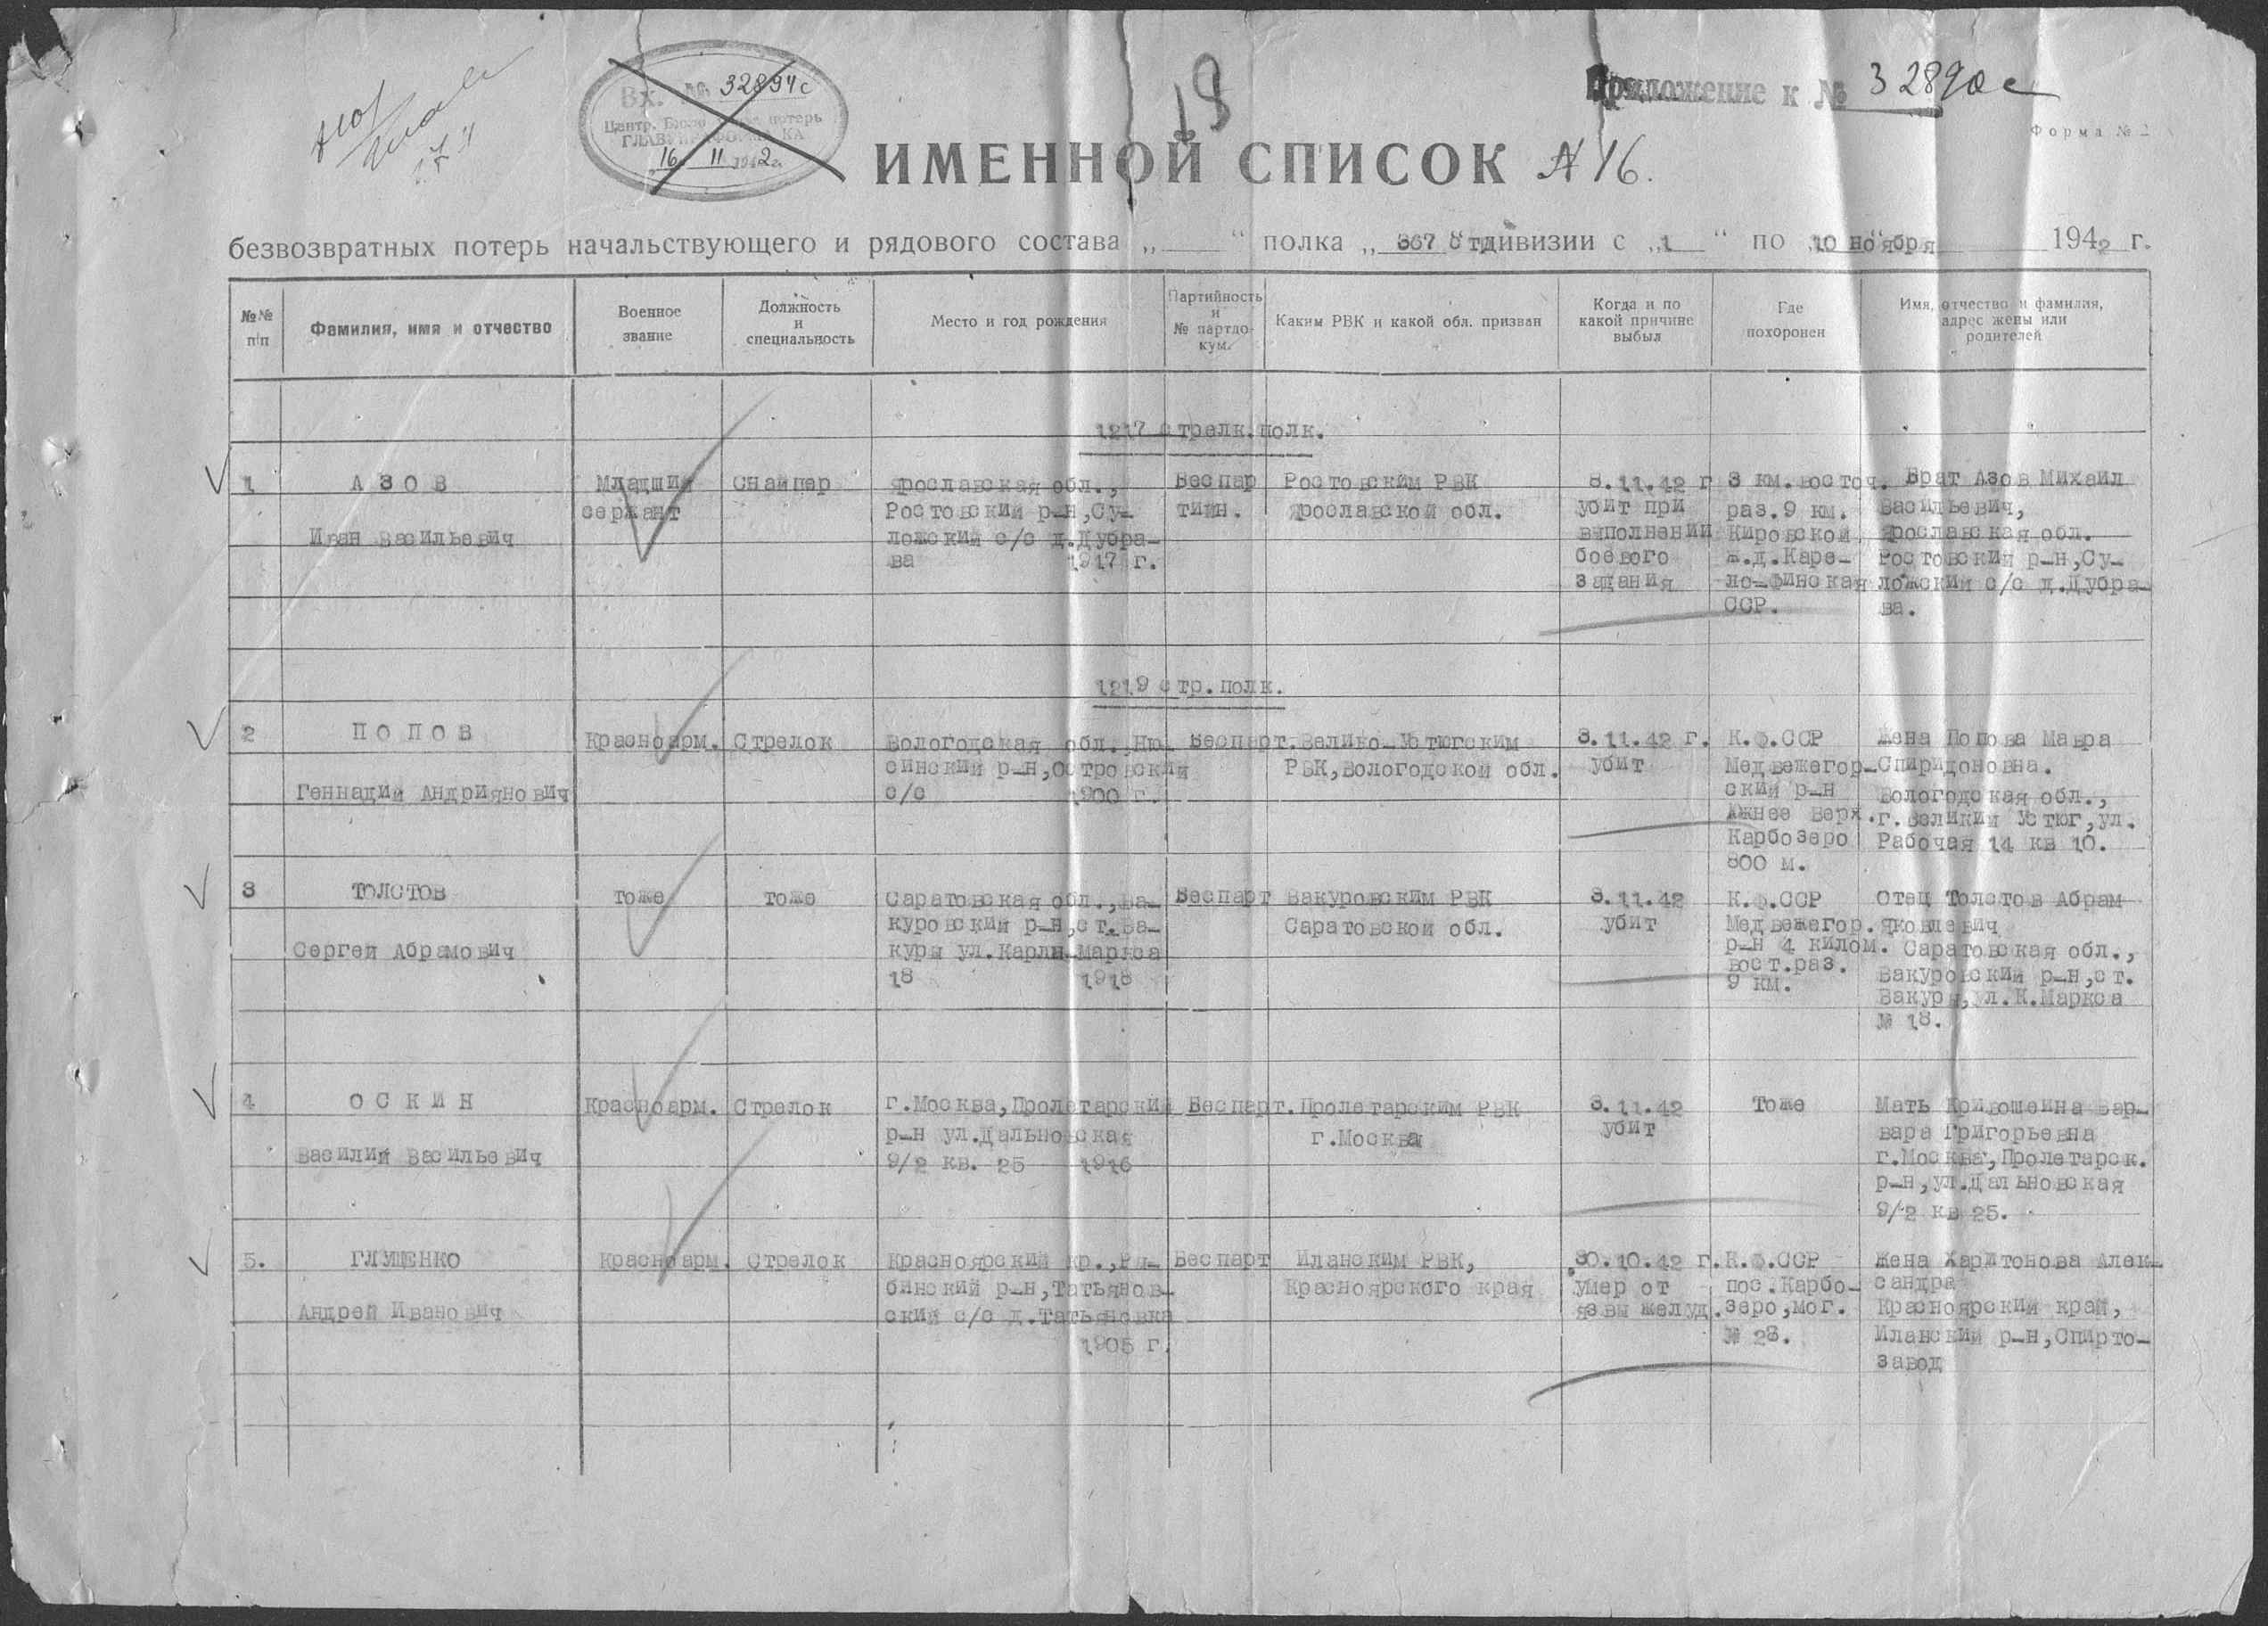 Вх. № 32894с
Центр. Бюро потерь
16 11 1942 г.
19
Приложение к № 32890с
Форма № 2
ИМЕННОЙ СПИСОК № 16.
безвозвратных потерь начальствующего и рядового состава „ “ полка „ 367 “ стр дивизии с „ 1 “ по „ 10 ноября 1942 г.
№№ п/п
Фамилия, имя и отчество
Военное звание
Должность и специальность
Место и год рождения
Партийность и № партдокум.
Каким РВК и какой обл. призван
Когда и по какой причине выбыл
Где похоронен
Имя, отчество и фамилия, адрес жены или родителей
1217 стрелк.полк.
1
АЗОВ
Иван Васильевич
Младший
сержант
Снайпер
Ярославская обл.,
Ростовский р-н,Су-
ложский с/с д.Дубра-
ва 1917 г.
Беспар
тийн.
Ростовским РВК
Ярославской обл.
8.11.42 г
убит при
выполнении
боевого
задания
3 км.восточ.
раз.9 км.
Кировской
ж.д.Каре-
ло-финская
ССР.
Брат Азов Михаил
Васильевич,
Ярославская обл.
Ростовский р-н,Су-
ложский с/с д.Дубра-
ва.
1219 стр.полк.
2
ПОПОВ
Геннадий Андриянович
Красноарм.
Стрелок
Вологодская обл.,Ню-
синский р-н,Островский
с/с 1900 г.
Беспарт.
Велико-Устюгским
РВК,Вологодской обл.
8.11.42 г.
убит
К.Ф.ССР
Медвежегор-
ский р-н
Южнее Верх.
Карбозеро
800 м.
Жена Попова Мавра
Спиридоновна.
Вологодская обл.,
г.Великий Устюг,ул.
Рабочая 14 кв 10.
3
ТОЛСТОВ
Сергей Абрамович
тоже
тоже
Саратовская обл.,Ба-
куровский р-н,ст.Ба-
куры ул.Карла Маркса
18 1918
Беспарт
Бакуровским РВК
Саратовской обл.
8.11.42
убит
К.Ф.ССР
Медвежегор.
р-н 4 килом.
вост.раз.
9 км.
Отец Толстов Абрам
Яковлевич
Саратовская обл.,
Бакуровский р-н,ст.
Бакуры,ул.К.Маркса
№ 18.
4
ОСКИН
Василий Васильевич
Красноарм.
Стрелок
г.Москва,Пролетарский
р-н ул.Дальновская
9/2 кв. 25 1916
Беспарт.
Пролетарским РВК
г.Москва
8.11.42
убит
Тоже
Мать Кривошеина Вар-
вара Григорьевна
г.Москва,Пролетарск.
р-н,ул.Дальновская
9/2 кв 25.
5.
ГЛУЩЕНКО
Андрей Иванович
Красноарм.
Стрелок
Красноярский кр.,Ры-
бинский р-н,Татьянов-
ский с/с д.Татьяновка
1905 г.
Беспарт
Иланским РВК,
Красноярского края
30.10.42 г.
умер от
язвы желуд.
К.Ф.ССР
пос.Карбо-
зеро,мог.
№ 28.
Жена Харитонова Алек-
сандра
Красноярский край,
Иланский р-н,Спирто-
завод